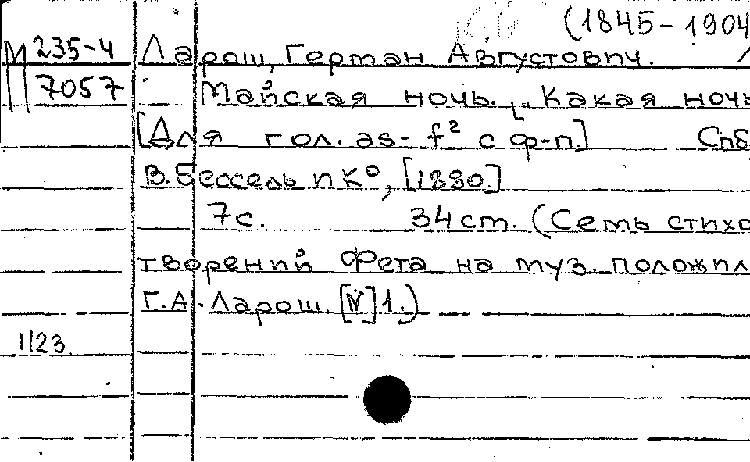 (1845-1904
М 235-4 Ларош, Герман Августович.
7057 Майская ночь. ["Какая ночь
[Для гол. as- f² с ф-п.] Спб
В. Бессель и К°, [1880.]
7с. 34 см. (Семь стихо
творений Фета на муз. положил
Г. А. Ларош. [№] 1.)
1123.